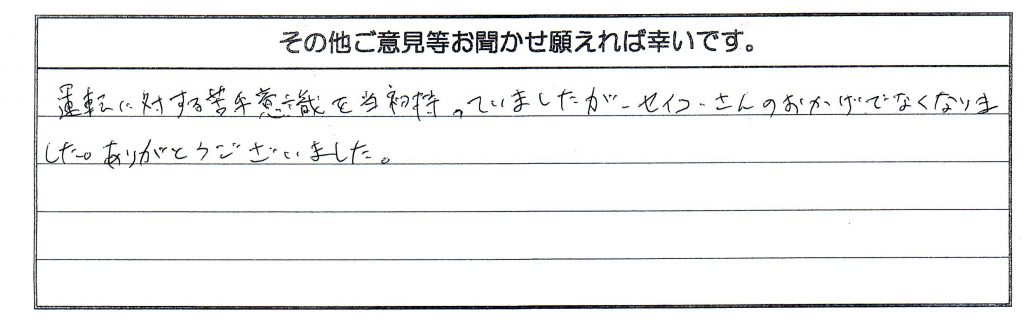 その他ご意見等お聞かせ願えれば幸いです。
運転に対する苦手意識を当初持っていましたが、セイコーさんのおかげでなくなりま
した。ありがとうございました。